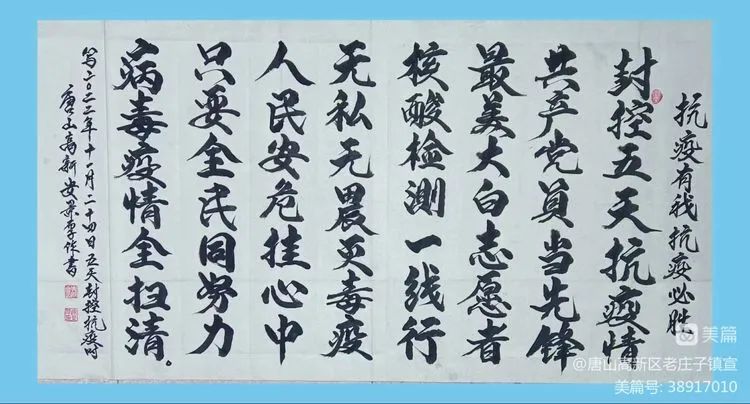 抗疫有我抗疫必胜
封控五天抗疫情
共产党员当先锋
最美大白志愿者
核酸检测一线行
无私无畏灭毒疫
人民安危挂心中
只要全民同努力
病毒疫情全扫清。
写二〇二二年十一月二十四日五天封控抗疫时
唐山高新安荣李保书
美篇
@唐山高新区老庄子镇宣
美篇号: 38917010